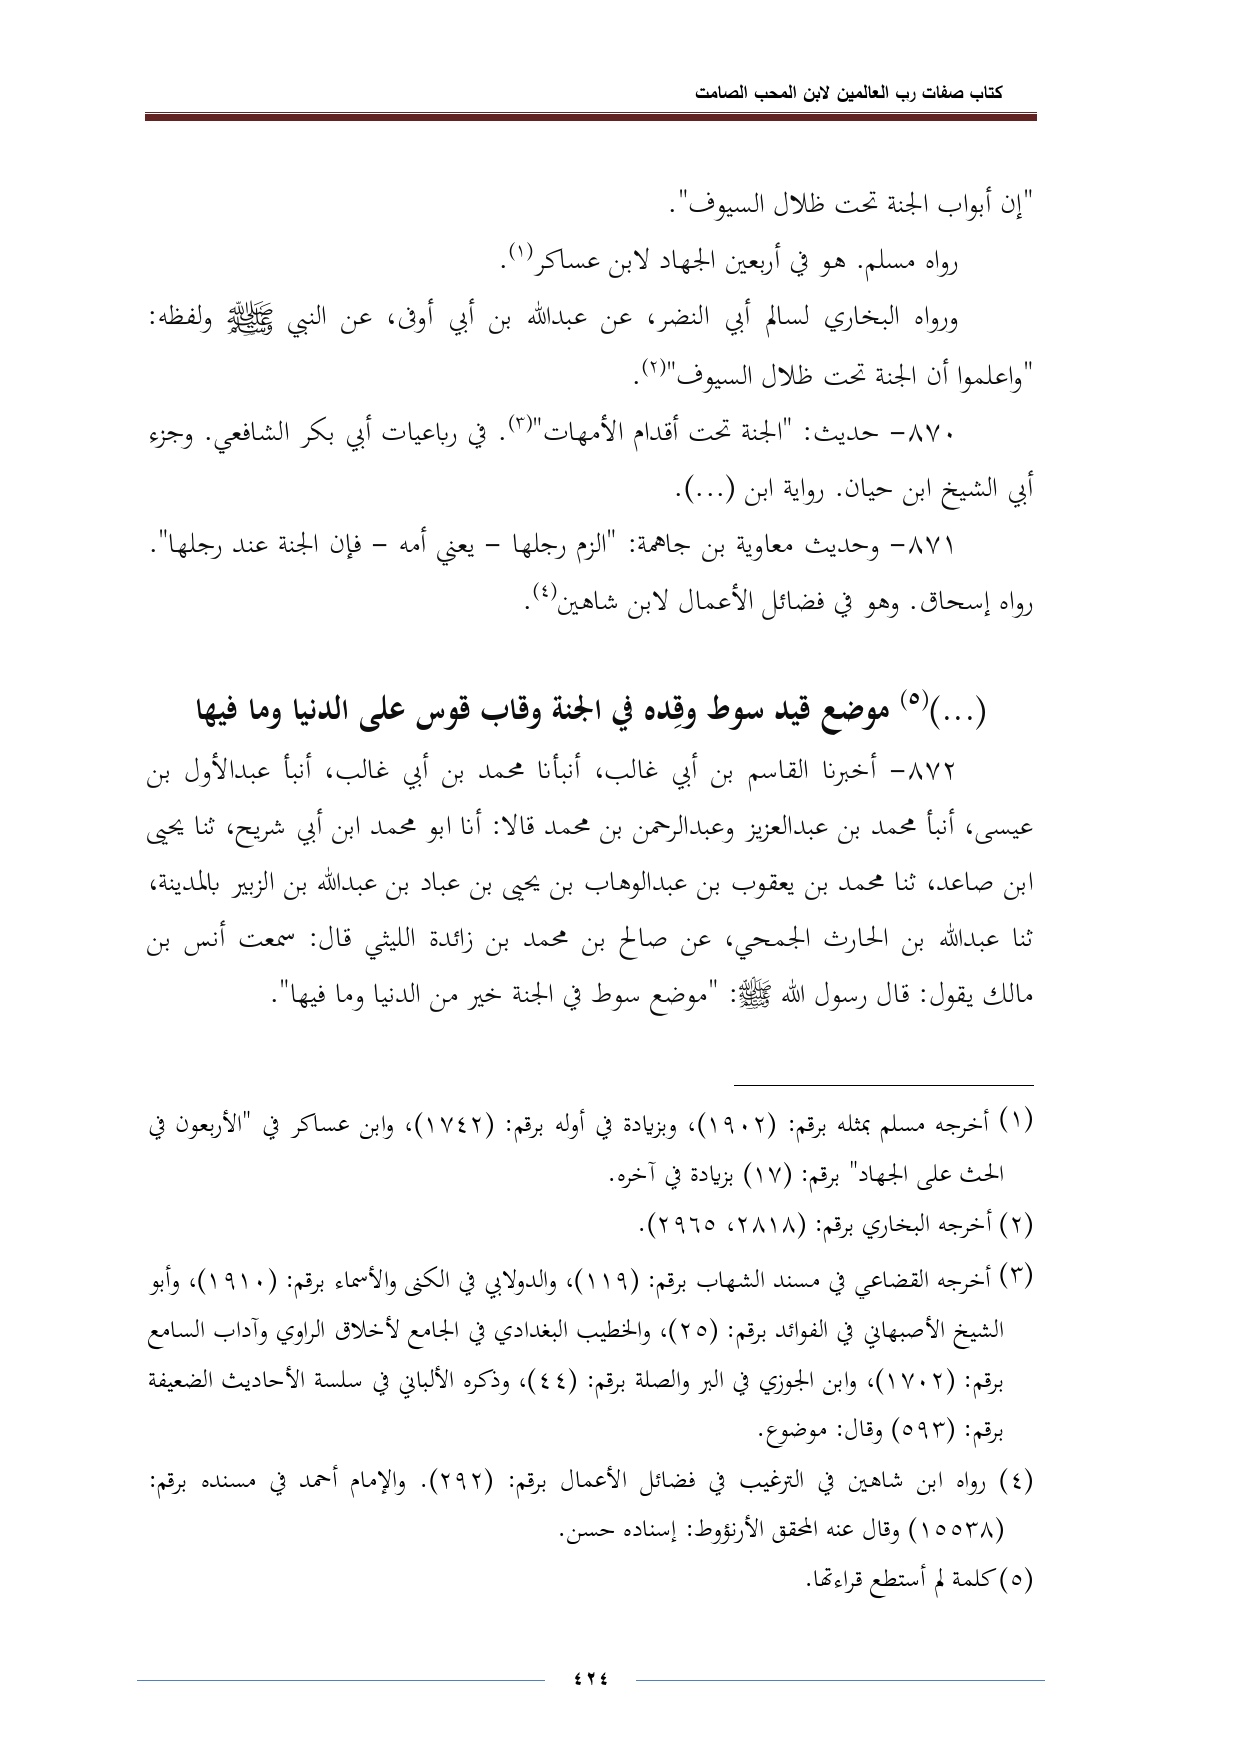 كتاب صفات رب العالمين لابن المحب الصامت
"إن أبواب الجنة تحت ظلال السيوف".
رواه مسلم. هو في أربعين الجهاد لابن عساكر(١).
ورواه البخاري لسالم أبي النضر، عن عبدالله بن أبي أوفى، عن النبي ﷺ ولفظه:
"واعلموا أن الجنة تحت ظلال السيوف"(٢).
٨٧٠– حديث: "الجنة تحت أقدام الأمهات"(٣). في رباعيات أبي بكر الشافعي. وجزء
أبي الشيخ ابن حيان. رواية ابن (...).
٨٧١– وحديث معاوية بن جاهمة: "الزم رجلها – يعني أمه – فإن الجنة عند رجلها".
رواه إسحاق. وهو في فضائل الأعمال لابن شاهين(٤).
(...)(٥) موضع قيد سوط وقِده في الجنة وقاب قوس على الدنيا وما فيها
٨٧٢– أخبرنا القاسم بن أبي غالب، أنبأنا محمد بن أبي غالب، أنبأ عبدالأول بن
عيسى، أنبأ محمد بن عبدالعزيز وعبدالرحمن بن محمد قالا: أنا ابو محمد ابن أبي شريح، ثنا يحيى
ابن صاعد، ثنا محمد بن يعقوب بن عبدالوهاب بن يحيى بن عباد بن عبدالله بن الزبير بالمدينة،
ثنا عبدالله بن الحارث الجمحي، عن صالح بن محمد بن زائدة الليثي قال: سمعت أنس بن
مالك يقول: قال رسول الله ﷺ: "موضع سوط في الجنة خير من الدنيا وما فيها".
(١) أخرجه مسلم بمثله برقم: (١٩٠٢)، وبزيادة في أوله برقم: (١٧٤٢)، وابن عساكر في "الأربعون في
الحث على الجهاد" برقم: (١٧) بزيادة في آخره.
(٢) أخرجه البخاري برقم: (٢٨١٨، ٢٩٦٥).
(٣) أخرجه القضاعي في مسند الشهاب برقم: (١١٩)، والدولابي في الكنى والأسماء برقم: (١٩١٠)، وأبو
الشيخ الأصبهاني في الفوائد برقم: (٢٥)، والخطيب البغدادي في الجامع لأخلاق الراوي وآداب السامع
برقم: (١٧٠٢)، وابن الجوزي في البر والصلة برقم: (٤٤)، وذكره الألباني في سلسة الأحاديث الضعيفة
برقم: (٥٩٣) وقال: موضوع.
(٤) رواه ابن شاهين في الترغيب في فضائل الأعمال برقم: (٢٩٢). والإمام أحمد في مسنده برقم:
(١٥٥٣٨) وقال عنه المحقق الأرنؤوط: إسناده حسن.
(٥) كلمة لم أستطع قراءتها.
٤٢٤